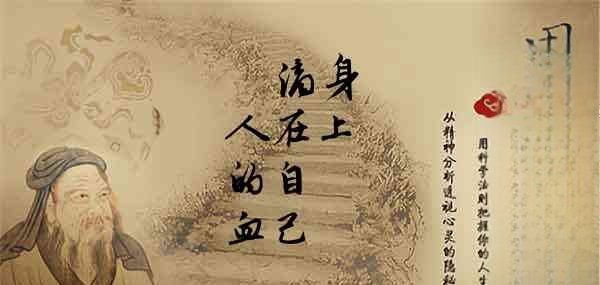 人的血
滴在自己
身上
用科学法则把握你的人生
从精神分析透视心灵的隐秘